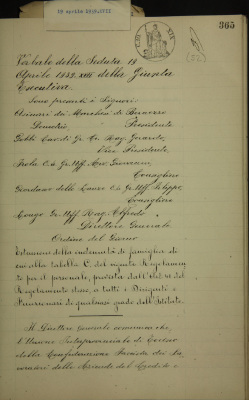 19 aprile 1939.XVII
365
Verbale della Seduta 19
Aprile 1939. XVII della Giunta
Esecutiva.
Sono presenti i Signori:
Asinari dei Marchesi di Bernezzo
Demetrio Presidente
Gatti Cav. di Gr. Cr. Rag. Gerardo,
Vice Presidente
Gr. Uff. Avv. Giovanni,
Consigliere
Giordano delle Lanze C.te Gr. Uff. Filippo,
Consigliere
Gr. Uff. Rag. Alfredo,
Direttore Generale
Ordine del Giorno
Estensione della indennità di famiglia di
cui alla tabella C. del vigente Regolamen-
to per il personale, prevista dall'art.
Regolamento stesso, a tutti i Dirigenti e
Funzionari di qualsiasi grado dell'Istituto.
Il Direttore Generale comunica che,
l'Unione Interprovinciale di
della Confederazione Fascista dei La-
voratori delle Aziende del Credito e